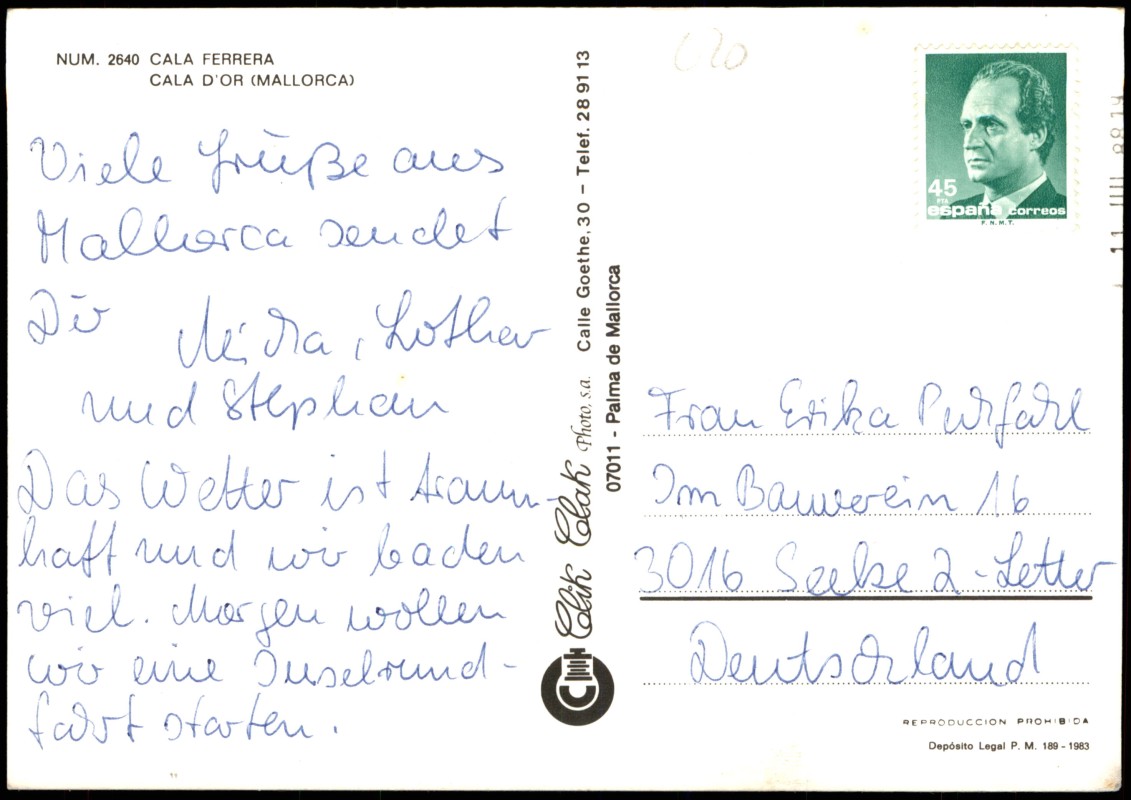 NUM. 2640 CALA FERRERA
CALA D'OR (MALLORCA)
Viele Grüße aus
Mallorca sendet
Dir
, Lothar
und Stephan
Das Wetter ist traum-
haft und wir baden
viel. Morgen wollen
wir eine Inselrund-
fahrt starten.
Clik Clak Photo, s.a. Calle Goethe, 30 – Telef. 28 91 13
07011 - Palma de Mallorca
45
PTA
españa correos
F.N.M.T.
Frau Erika
Im Bauverein 16
3016 Seelze 2-Letter
Deutschland
REPRODUCCION PROHIBIDA
Depósito Legal P. M. 189 - 1983